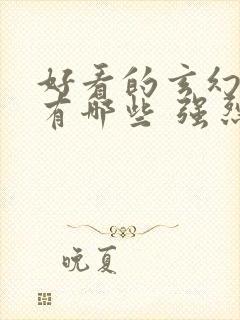 好看的玄幻
有哪些 强烈
晚夏